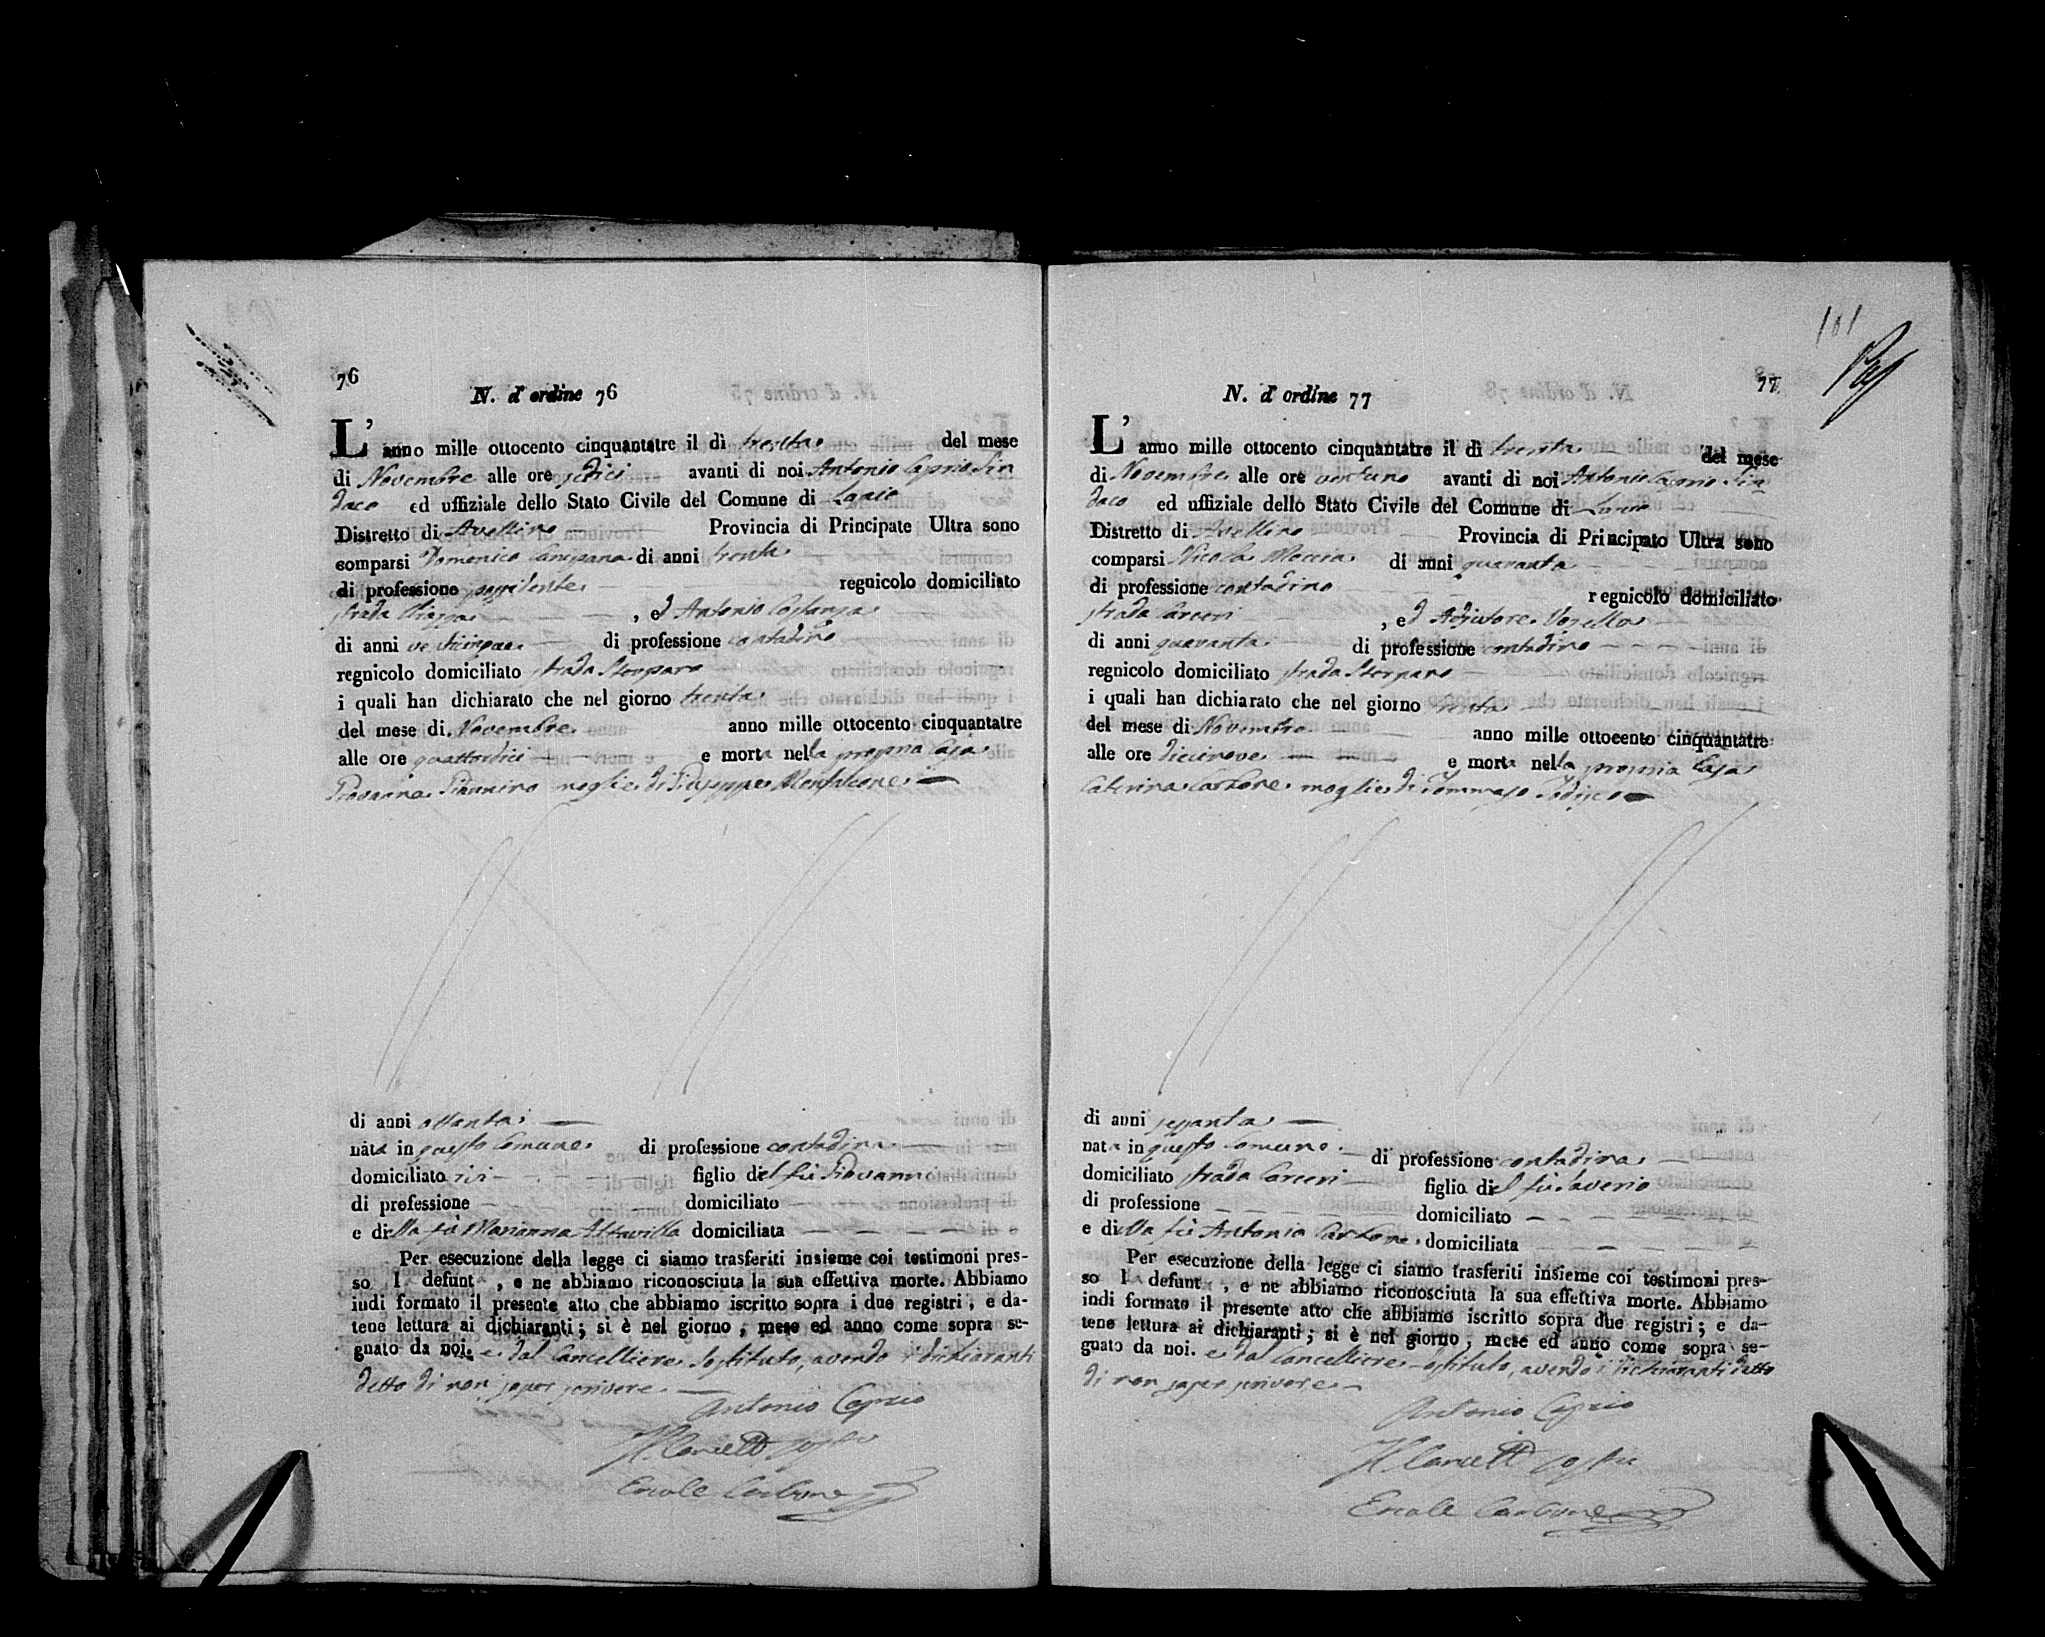 76
N. d'ordine 76
L' anno mille ottocento cinquantatre il dì trenta del mese
di Novembre alle ore sedici avanti di noi Antonio Caprio Sin
daco ed uffiziale dello Stato Civile del Comune di Lapio
Distretto di Avellino Provincia di Principate Ultra sono
comparsi Domenico Campana di anni trenta
di professione regnicolo domiciliato
strada Chiazza , ed Antonio Costanza
di anni venticinque di professione contadino
regnicolo domiciliato strada
i quali han dichiarato che nel giorno trenta
del mese di Novembre anno mille ottocento cinquantatre
alle ore quattordici e morta nella propria Casa
Giovanna Giannino moglie di Giuseppe Monfalcone
di anni ottanta
nata in questo Comune di professione contadina
domiciliato ivi figlio del fù Giovanni
di professione domiciliato
e della fù Marianna Altavilla domiciliata
Per esecuzione della legge ci siamo trasferiti insieme coi testimoni pres-
so la defunta , e ne abbiamo riconosciuta la sua effettiva morte. Abbiamo
indi formato il presente atto che abbiamo iscritto sopra i due registri, e da-
tene lettura ai dichiaranti; si è nel giorno, mese ed anno come sopra se-
gnato da noi. e dal Cancelliere sostituto, avendo i dichiaranti
detto di non saper scrivere
Antonio Caprio
Il Cancell sosto
Ercole Carbone
101
77
N. d'ordine 77
L' anno mille ottocento cinquantatre il dì trenta del mese
di Novembre alle ore ventuno avanti di noi Antonio Caprio Sin
daco ed uffiziale dello Stato Civile del Comune di Lapio
Distretto di Avellino Provincia di Principato Ultra sono
comparsi Nicola Moccia di anni quaranta
di professione contadino regnicolo domiciliato
strada Carceri , ed Adjutore
di anni quaranta di professione contadino
regnicolo domiciliato strada
i quali han dichiarato che nel giorno trenta
del mese di Novembre anno mille ottocento cinquantatre
alle ore diecinove e morta nella propria Casa
Caterina Carbone moglie di Tommaso
di anni sessanta
nata in questo comune di professione contadina
domiciliato strada Carceri figlia del fù Saverio
di professione domiciliato
e della fù Antonia Carbone domiciliata
Per esecuzione della legge ci siamo trasferiti insieme coi testimoni pres-
so la defunta , e ne abbiamo riconosciuta la sua effettiva morte. Abbiamo
indi formato il presente atto che abbiamo iscritto sopra due registri; e da-
tene lettura ai dichiaranti; si è nel giorno, mese ed anno come sopra se-
gnato da noi. e dal Cancelliere sostituto, avendo i dichiaranti detto
di non saper scrivere
Antonio Caprio
Il Cancell sosto
Ercole Carbone